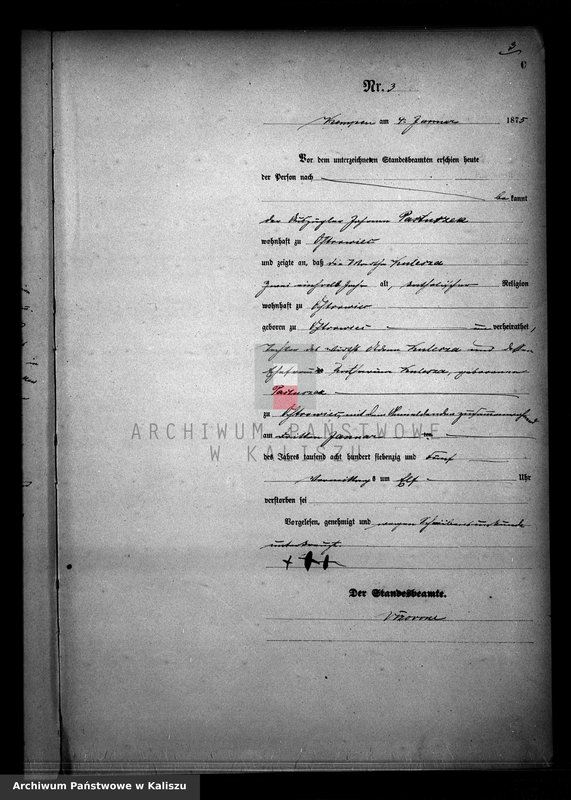 3
C
Nr. 3
Kempen am 4. Januar 1875
Vor dem unterzeichneten Standesbeamten erschien heute
der Person nach
bekannt
der Auszügler Johann Pastuszek
wohnhaft zu Ostrowiec
und zeigte an, daß die Kulesza
alt, katholischer Religion
wohnhaft zu Ostrowiec
geboren zu Ostrowiec verheirathet,
Tochter des Kulesza und dessen
Ehefrau Kulesza, geborenen
Pastuszek
zu Ostrowiec, mit dem Anmeldenden zusammenwohnend
am dritten Januar
des Jahres tausend acht hundert siebenzig und fünf
Vormittags um Elf Uhr
verstorben sei
Vorgelesen, genehmigt und wegen Schreibensunkunde
unterkreuzt.
+++
Der Standesbeamte.
ARCHIWUM PAŃSTWOWE
W KALISZU
Archiwum Państwowe w Kaliszu